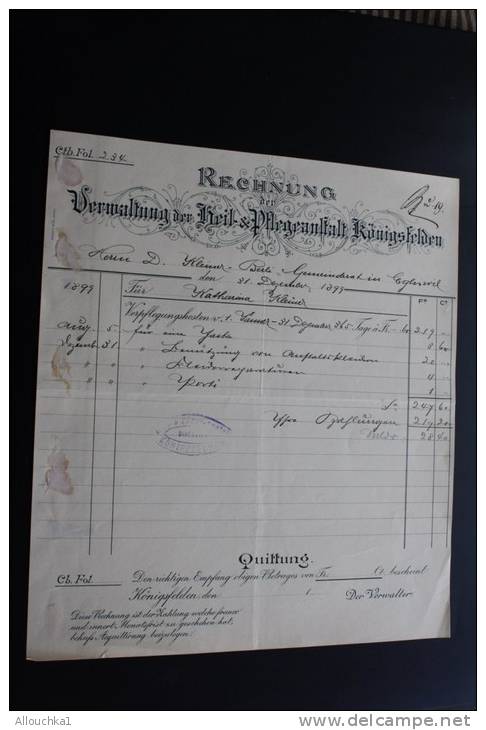 Ctb. Fol. 234.
RECHNUNG
der
Verwaltung der Heil- & Pflegeanstalt Königsfelden
Herrn D. Gemeinderat in Egliswil
den 31. Dezember 1899
1899 Für Katharina Kleiner Fr. Ct.
Verpflegungskosten v. 1. Januar - 31 Dezember 365 Tage à Fr. -.60 219 -
Aug. 5 für eine 8
Dezemb. 31 " Benützung von Anstaltskleidern
" " " Kleiderreparaturen 4 -
" " " Porti 1 -
Fr. 247 60
Ihre Zahlungen 219 20
28 40
Quittung.
Cb. Fol. Den richtigen Empfang obigen Betrages von Fr. Ct. bescheint
Königsfelden, den 1 Der Verwalter
Diese Rechnung ist der Zahlung welche franco
und innert Monatsfrist zu geschehen hat,
behufs Aquittirung beizulegen.
© Allouchka1
http://www.delcampe.net